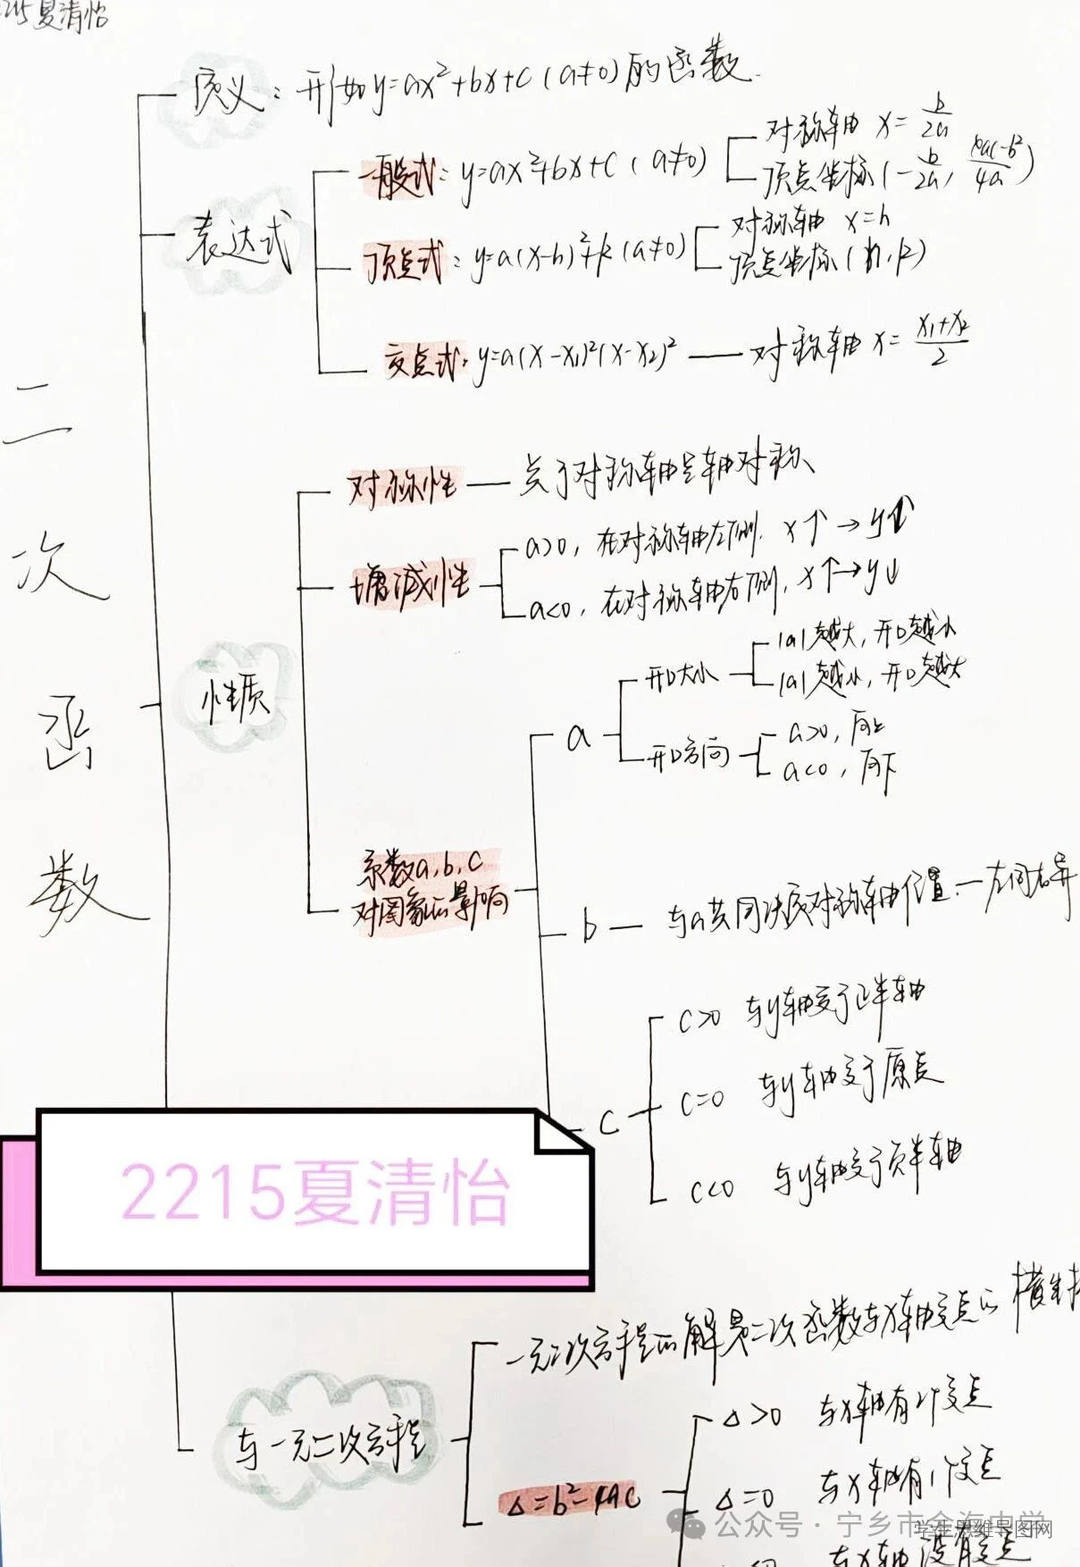 215夏清怡
定义：形如y=ax²+bx+c（a≠0）的函数.
表达式
一般式：y=ax²+bx+c（a≠0）
对称轴 x=b/2a
顶点坐标(-b/2a, 4ac-b²/4a)
顶点式：y=a(x-h)²+k（a≠0）
对称轴 x=h
顶点坐标(h,k)
交点式：y=a(x-x₁)²(x-x₂)² — 对称轴 x=x₁+x₂/2
二次函数
性质
对称性 — 关于对称轴是轴对称
增减性
a>0, 在对称轴左侧, x↑→y
a<0, 在对称轴右侧, x↑→y↓
系数a,b,c
对图象的影响
a
开口大小
|a|越大,开口越小
|a|越小,开口越大
开口方向
a>0,向上
a<0,向下
b — 与a共同决定对称轴位置.一左同右异
c
c>0 与y轴交于正半轴
c=0 与y轴交于原点
c<0 与y轴交于负半轴
2215夏清怡
与一元二次方程
一元二次方程的解是二次函数与x轴交点的横坐
△=b²-4ac
△>0 与x轴有2个交点
△=0 与x轴有1个交点
与x轴没有交点
公众号·宁乡市金海中学
学生思维导图网